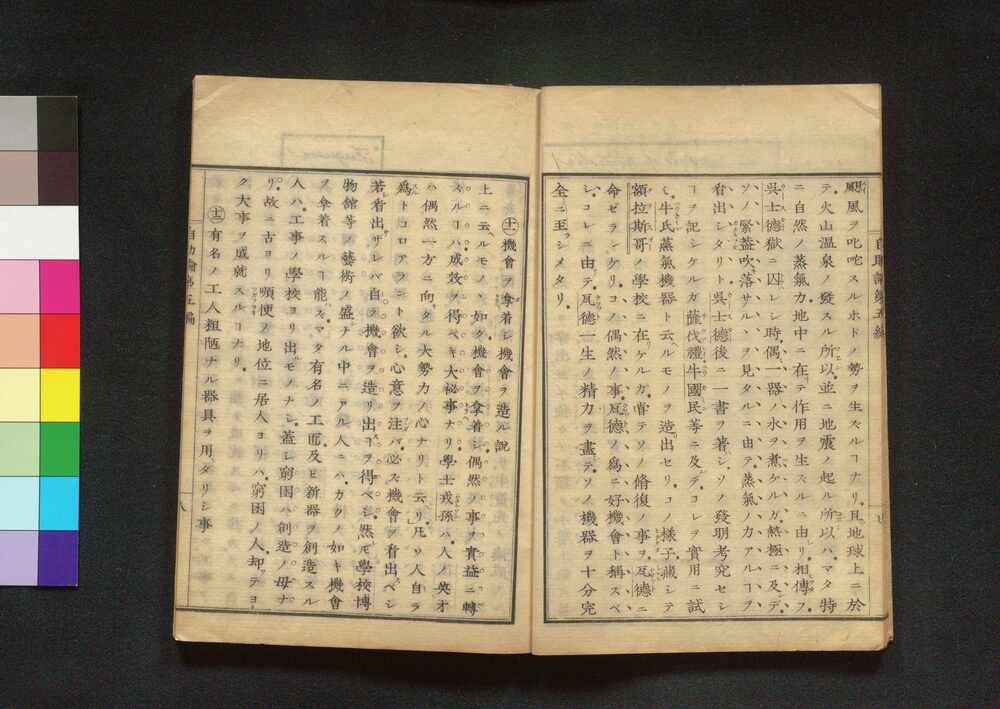 颶風ヲ叱咤スルホドノ勢ヲ生スルヿナリ。且地球上ニ於
テ。火山温泉ノ發スル所以。並ニ地震ノ起ル所以ハ。マタ特
ニ自然ノ蒸氣力地中ニ在テ作用ヲ生スルニ由リ。相傳フ。
呉士德獄ニ囚レシ時。偶一器ノ水ヲ煮ケルガ。熱極ニ及デ。
ソノ緊蓋吹落サルヽヲ見タルニ由テ。蒸氣ノ力アルヿヲ
看出シタリト。呉士德後ニ一書ヲ著シ。ソノ發明考究セシ
ヿヲ記シケルガ。薩伐禮牛國民等ニ及テ。コレヲ實用ニ試
ミ。牛氏蒸氣機器ト云ルモノヲ造出セリ。コノ樣子藏シテ
額拉斯哥ノ學挍ニ在ケルガ。甞テソノ脩復ノ事ヲ瓦德ニ
命ゼラレケリ。コハ偶然ノ事。瓦德ノ爲ニ好機會ト稱スベ
シ。コレニ由テ。瓦德一生ノ精力ヲ盡テ。ソノ機器ヲ十分完
全ニ至ラシメタリ。
自助論第五編
十一 機會ヲ拿着シ機會ヲ造ル說
上ニ云ヘルモノヽ如ク。機會ヲ拿着シ。偶然ノ事ヲ實益ニ轉
スルヿハ。成效ヲ得ベキ大秘事ナリ。學士戎孫ハ。人ノ英才
ハ偶然一方ニ向タル大勢力ノ心ナリト云リ。凡ソ人自ラ
爲トコロアランヿト欲シ。心意ヲ注バ。必ズ機會ヲ看出ベシ
若看出サレバ。自ラ機會ヲ造リ出ヿヲ得ベシ。然ドモ學校博
物館等ノ藝術ノ盛ナル中ニアル人ニハ。カクノ如キ機會
ヲ拿着スルヿ能ズ。マタ有名ノ工商及ヒ新器ヲ創造スル
人ハ。工事ノ學挍ヨリ出ルモノナシ。蓋シ窮困ハ創造ノ母ナ
リ。故ニ古ヨリ順便ノ地位ニ居人ヨリハ。窮困ノ人却テヨ
ク大事ヲ成就スルヿナリ。
十二 有名ノ工人粗陋ナル器具ヲ用タリシ事
自助論第五編
八